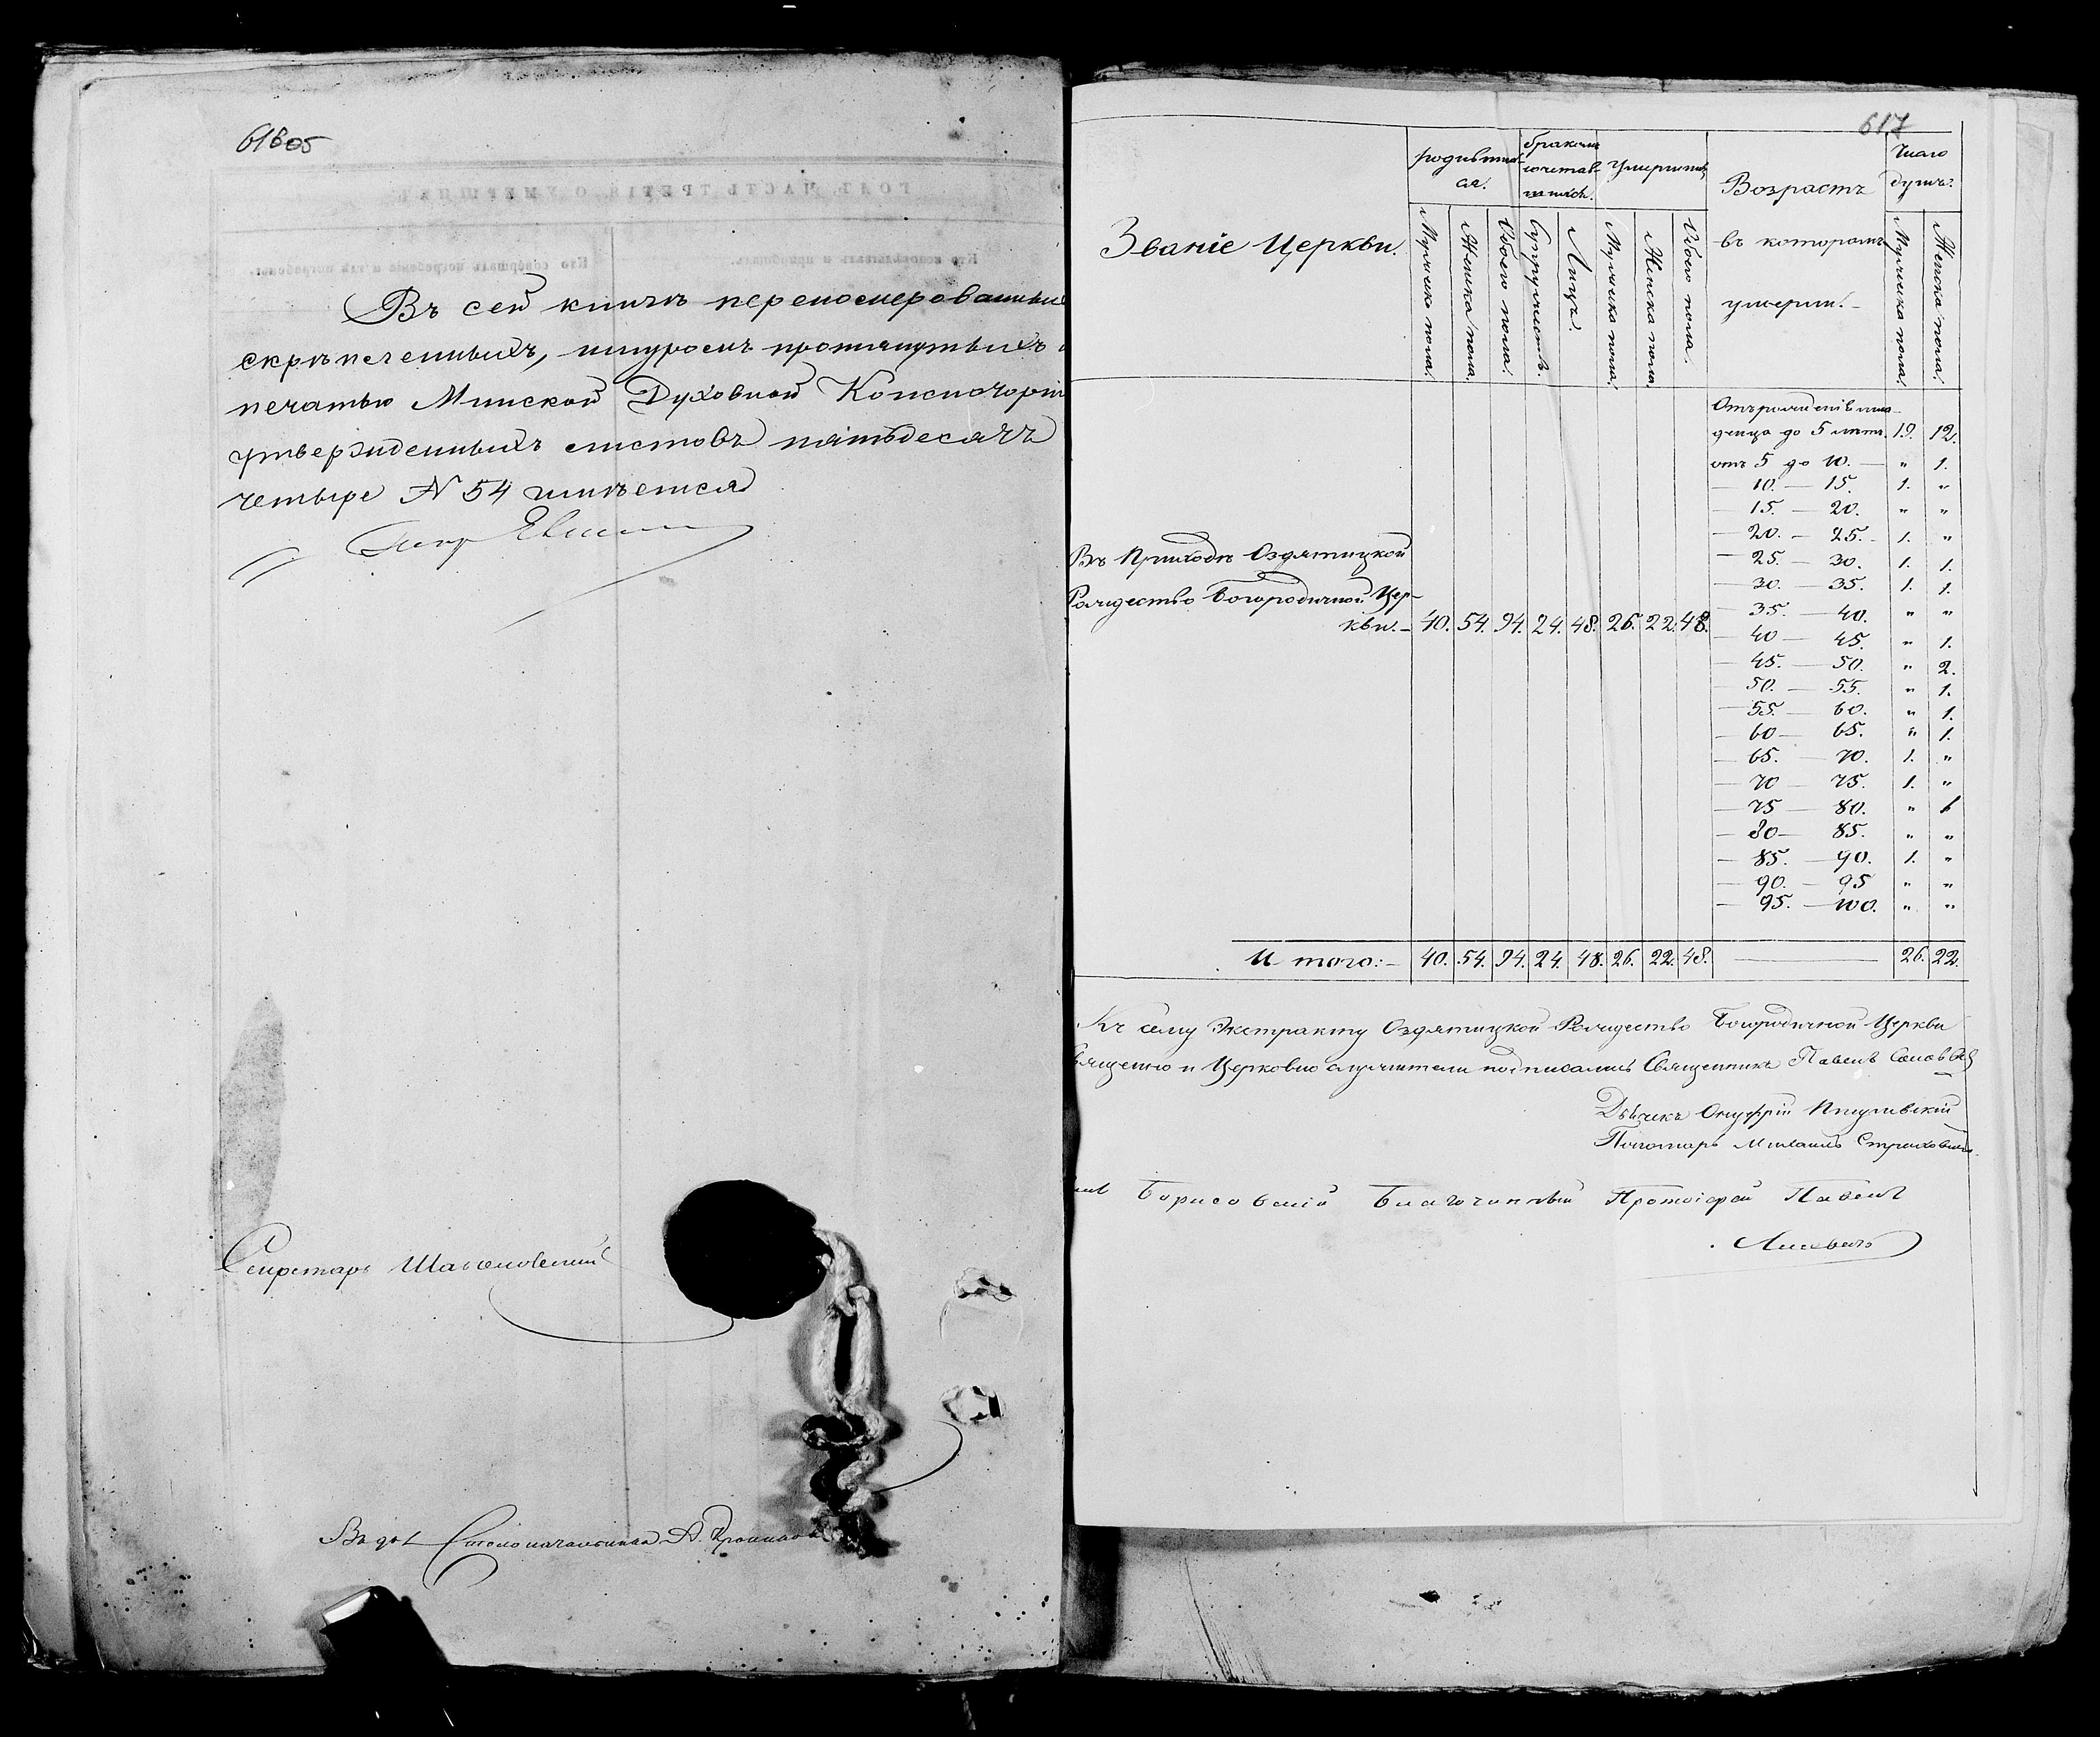 616об
Въ сей книгѣ переномерованныхъ
скрѣпленныхъ, шнуромъ протянутыхъ и
печатью Минской Духовной Консисторіи
утвержденныхъ листовъ пятьдесятъ
четыре N 54 имѣется
Секретарь
Въ дол. Столоначальника А.
617
Званіе Церкви.
родивших-
ся.
бракомъ
сочетав-
шихся.
умершихъ
Возрастъ
въ которомъ
умерли.
Число
душъ.
Мужеска пола.
Женска пола.
Обоего пола.
Супружествъ.
Лицъ.
Мужеска пола.
Женска пола.
Обоего пола.
Мужеска пола.
Женска пола.
Въ Приходѣ Оздятицкой
Рождество Богородичной Цер-
кви. – 40. 54. 94. 24. 48. 26. 22. 48.
Отъ рожденія мла-
денца до 5 лѣтъ. 19. 12.
отъ 5 до 10. — „ 1.
— 10. — 15. 1. „
— 15. — 20. „ „
— 20. — 25. 1. „
— 25. — 30. 1. 1.
— 30. — 35. 1. 1.
— 35. — 40. „ „
— 40 — 45. „ 1.
— 45. — 50. „ 2.
— 50. — 55. „ 1.
— 55. — 60. „ 1.
— 60 — 65. „ 1.
— 65. — 70. 1. „
— 70 — 75. 1. „
— 75 — 80. „ 1
— 80 — 85. „ „
— 85. — 90. 1. „
— 90. — 95 „ „
— 95. — 100. „ „
И того: – 40. 54. 94. 24. 48. 26. 22. 48. — 26. 22.
Къ сему Экстракту Оздятицкой Рождество Богородичной Церкви
Священно и Церковно служители подписались Священникъ Павелъ
Дьячекъ Онуфрій
Пономарь Михаилъ
Борисовскій Благочинный Протоіерей Павелъ